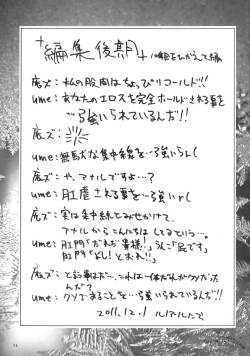 編集後期
鹿ズ:私の股間はちょっぴりコールド!!
ume:あなたのエロスを完全ホールドされる事を
…強いられているんだ!!
鹿ズ:
ume:無駄な集中線を…強いらん(
鹿ズ:や、アナルですよ…?
ume:肛虐される事を…強いr(
鹿ズ:実は集中線とみせかけて、
アナルからこんちはしてるという…。
ume:肛門「だれだ貴様!」うんこ「民です」
肛門「よし!とおれ!!」
鹿ズ:と記事はだ…これは一体だれがクソだった
んだ?
ume:クソであることを…強いられているんだ!!
2011.12.1